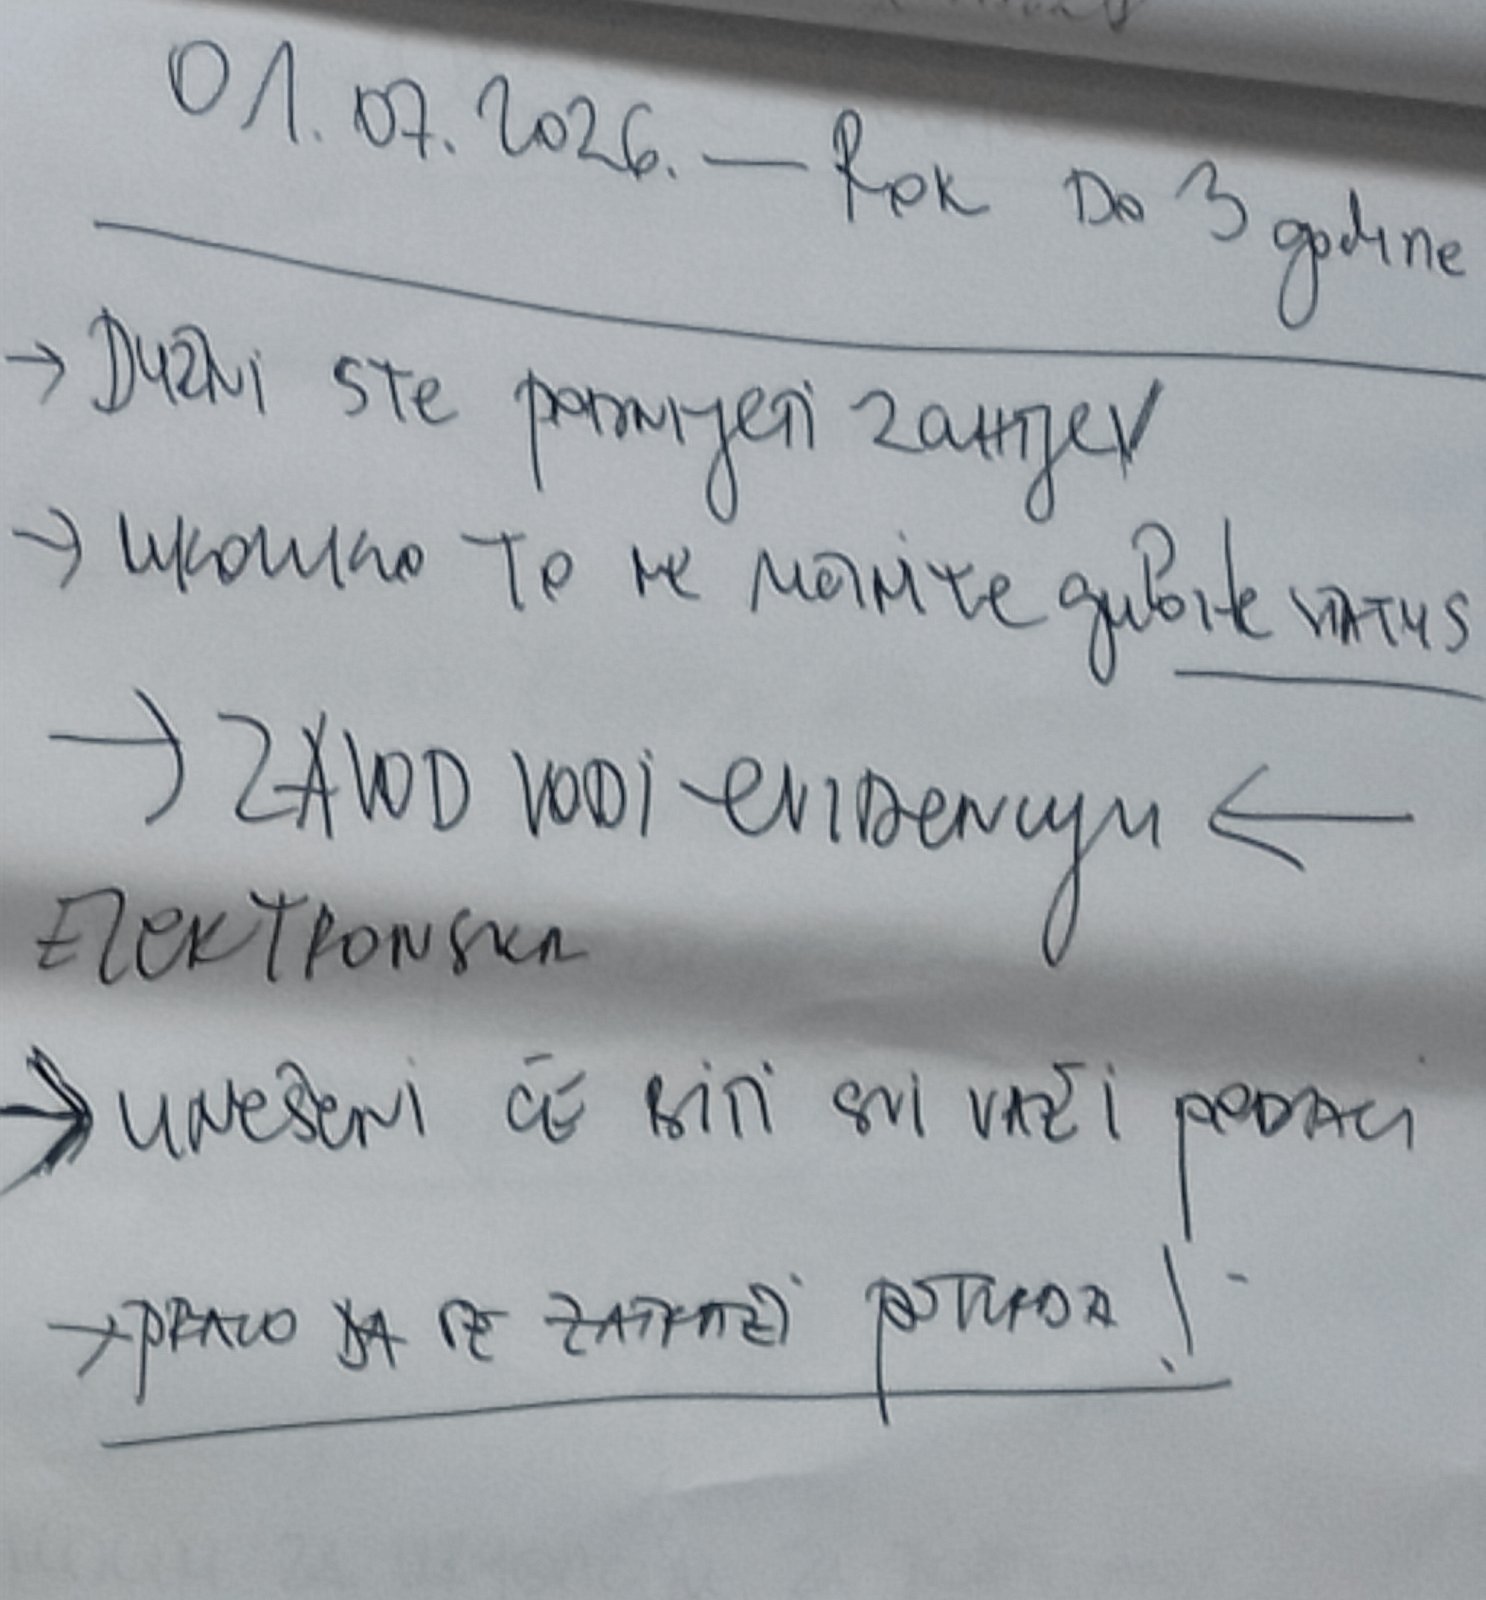 01.07.2026. — Rok do 3 godine
→ Dužni ste podnijeti zahtjev
→ ukoliko to ne učinite gubite status
→ ZAVOD VODI evidenciju ←
Elektronska
→ unešeni će biti svi važi podaci
→ pravo da se zatraži potvrda!